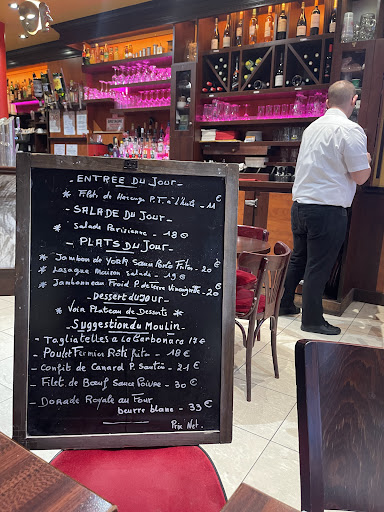 - ENTREE DU JOUR -
* Filets de Harengs P.T. à l'huile - 11 €
- SALADE DU JOUR -
* Salade Parisienne - 18 €
- PLATS DU JOUR -
* Jambon de York Sauce Porto Frites - 20 €
* Lasagne Maison Salade - 19 €
* Jambonneau Froid P. de terre Vinaigrette - 20 €
- Dessert du jour -
* Voir Plateau de Desserts *
- Suggestion du Moulin -
- Tagliatelles a la Carbonara 17 €
- Poulet Fermier Rôti frites - 18 €
- Confit de Canard P. Sautées - 21 €
- Filet de Bœuf Sauce Poivre - 30 €
- Dorade Royale au Four
beurre blanc - 33 €
Prix Net.